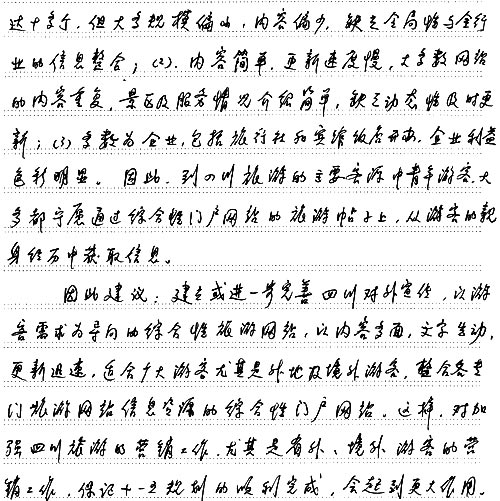 达十多个，但大多规模偏小，内容偏少，缺乏全局性与全行
业的信息整合；(2)、内容简单，更新速度慢，大多数网站
的内容重复，景区及服务情况介绍简单，缺乏动态性及时更
新；(3)多数为企业，包括旅行社和宾馆饭店开办，企业利益
色彩明显。因此，到四川旅游的主要客源中青年游客，大
多都宁愿通过综合性门户网站的旅游帖子上，从游客的亲
身经历中获取信息。
因此建议：建立或进一步完善四川对外宣传，以游
客需求为导向的综合性旅游网站，以内容全面，文字生动，
更新迅速，适合广大游客尤其是外地及境外游客，整合各专
门旅游网站信息资源的综合性门户网站。这样，对加
强四川旅游的营销工作，尤其是省外、境外游客的营
销工作，保证十一五规划的顺利完成，会起到更大作用。